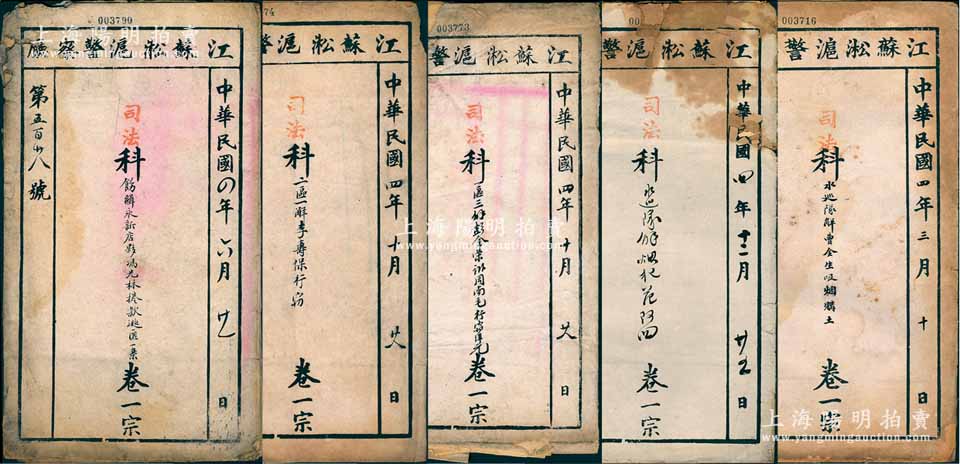 003790
江蘇淞滬警察廳
中華民國四年六月廿 日
司法科
卷一宗
第五百 八號
74
江蘇淞滬警
中華民國四年十月廿八日
司法科 二區一解李壽保行竊 卷一宗
003773
江蘇淞滬警
中華民國四年十月廿八日
司法科
卷一宗
00
江蘇淞滬警
中華民國四年十二月廿五日
司法科 水巡隊解烟犯范阿四 卷一宗
003716
江蘇淞滬警
中華民國四年三月十日
司法科 水巡隊解曹金生吸烟購土 卷一宗
上海陽明拍賣
www.yangmingauction.com
上海陽明拍賣
www.yangmingauction.com
上海陽明拍賣
www.yangmingauction.com